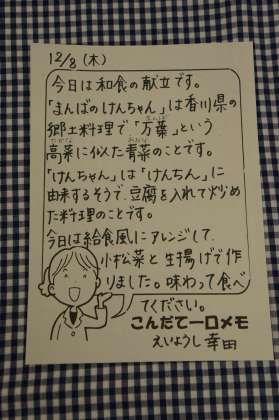 12/8 (木)
今日は和食の献立です。
「まんばのけんちゃん」は香川県の
郷土料理で「万葉」という
高菜に似た青菜のことです。
「けんちゃん」は「けんちん」に
由来するそうで、豆腐を入れて炒め
た料理のことです。
今日は給食風にアレンジして、
小松菜と生揚げで作
りました。味わって食べ
てください。
こんだて一口メモ
えいようし 幸田